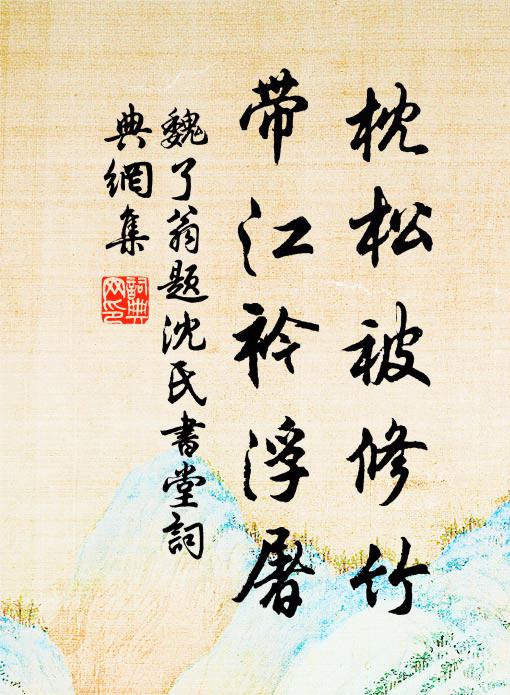 枕松被修竹
带江衿浮屠
魏了翁题沈氏書堂詞
典網集
詞典
网印